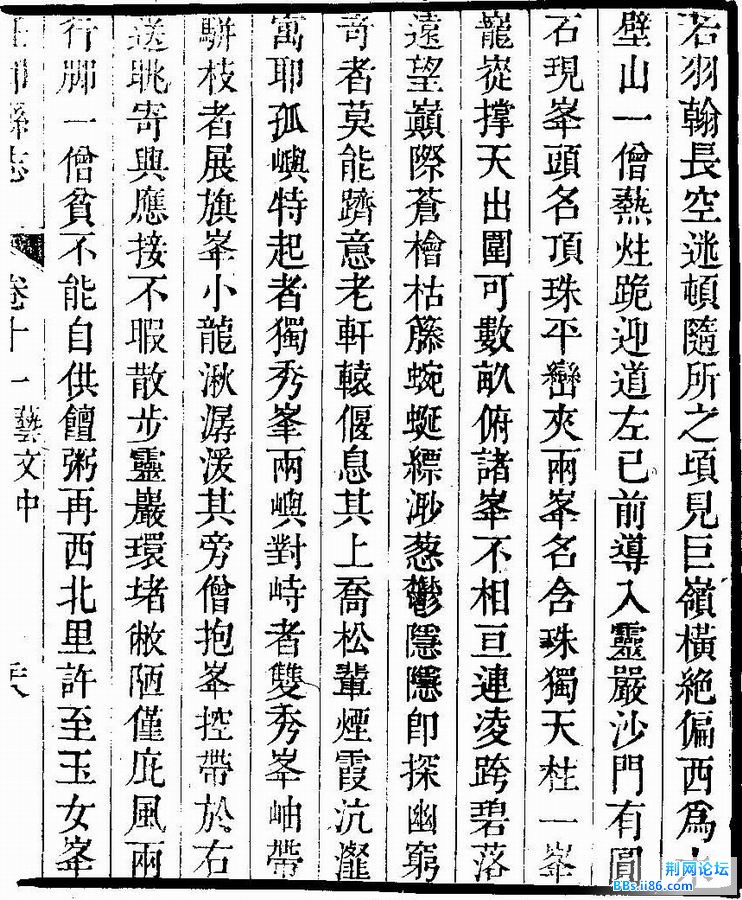 若羽翰長空逃頓隨所之頃見巨嶺橫絶偏西爲
壁山一僧熱炷跪迎道左已前導入靈嚴沙門有圓
石現峯頭名頂珠平巒夾兩峯名含珠獨天柱一峯
巃嵸撑天出圍可數畝俯諸峯不相亘連凌跨碧落
遠望巔際蒼檜枯籐蜿蜒縹渺葱鬱隱隱卽探幽窮
竒者莫能躋意老軒轅偃息其上喬松輩煙霞沆瀣
寓耶孤嶼特起者獨秀峯兩嶼對峙者雙秀峯岫帶
駢枝者展旗峯小龍湫潺湲其旁僧抱峯控帶於右
送眺寄興應接不暇散步靈巖環堵敝陋僅庇風兩
行脚一僧貧不能自供饘粥再西北里許至玉女峯
卷十一 藝文中
荆网论坛
BBs.ii86.com